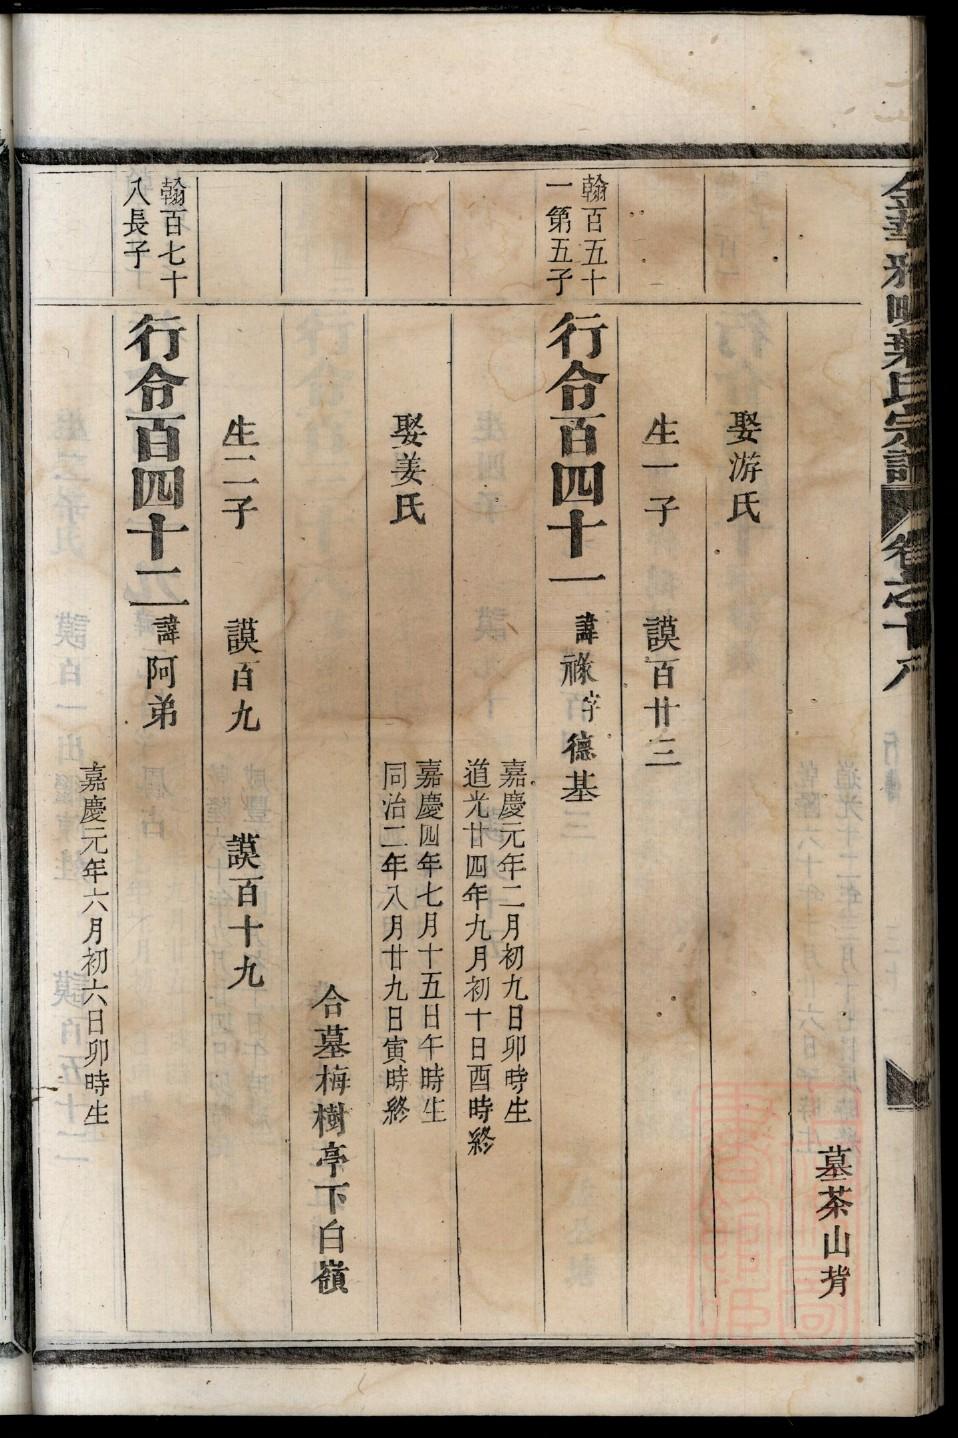 葉氏宗譜
卷之十八
墓茶山背
娶游氏
生一子 謨百廿三
翰百五十
一第五子
行令百四十一 諱祿字德基
嘉慶元年二月初九日卯時生
道光廿四年九月初十日酉時終
娶姜氏
嘉慶四年七月十五日午時生
同治二年八月廿九日寅時終
合墓梅樹亭下白嶺
生二子 謨百九 謨百十九
翰百七十
八長子
行令百四十二 諱阿弟
嘉慶元年六月初六日卯時生